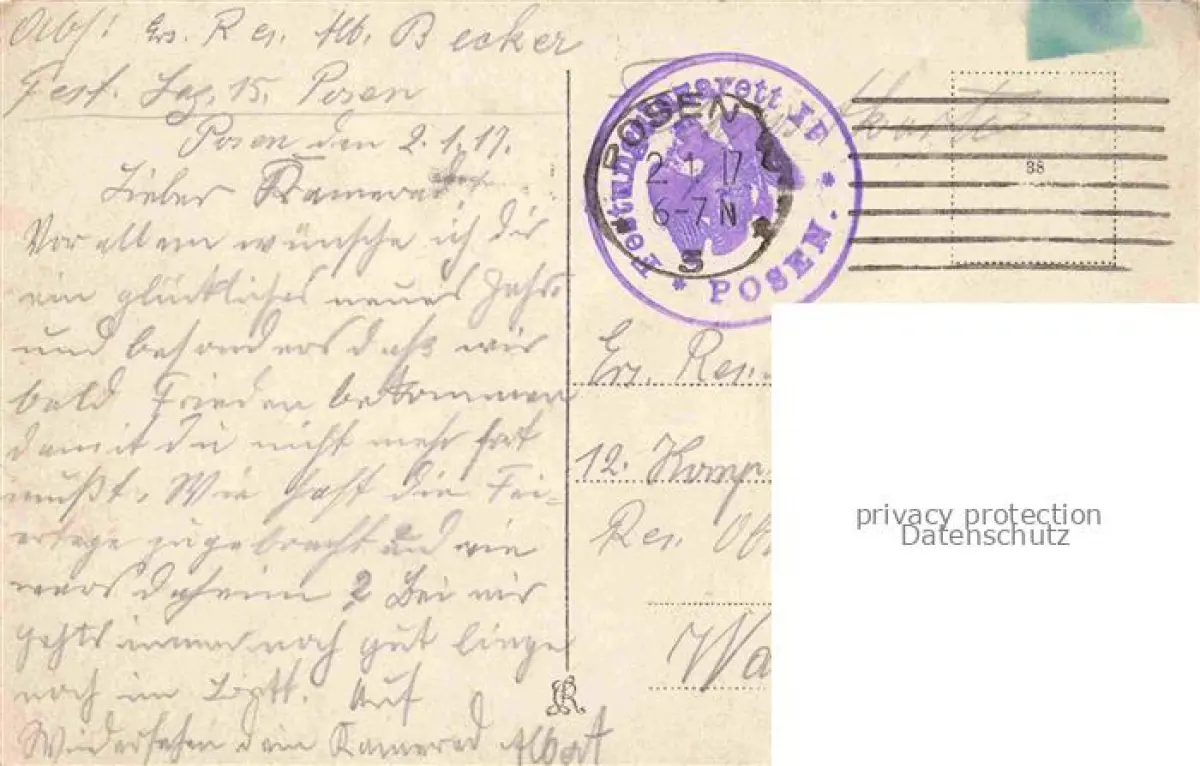 Abs: Ers. Res. Alb. Becker
Fest. Laz. 15. Posen
Posen den 2.1.17.
Lieber Kamerad
Vor allem wünsche ich dir
ein glückliches neues Jahr
und besonders daß wir
bald Frieden bekommen
damit du nicht mehr fort
mußt. Wie hast die Fei-
ertage zugebracht und wie
wars daheim? Bei mir
gehts immer noch gut liege
noch im Lztt. Auf
Wiedersehen dein Kamerad Albert
Festungslazarett XV.
* POSEN. *
POSEN
2.1.17
6-7N
3
38
Ers. Res.
12. Komp.
Res.
Wa
privacy protection
Datenschutz